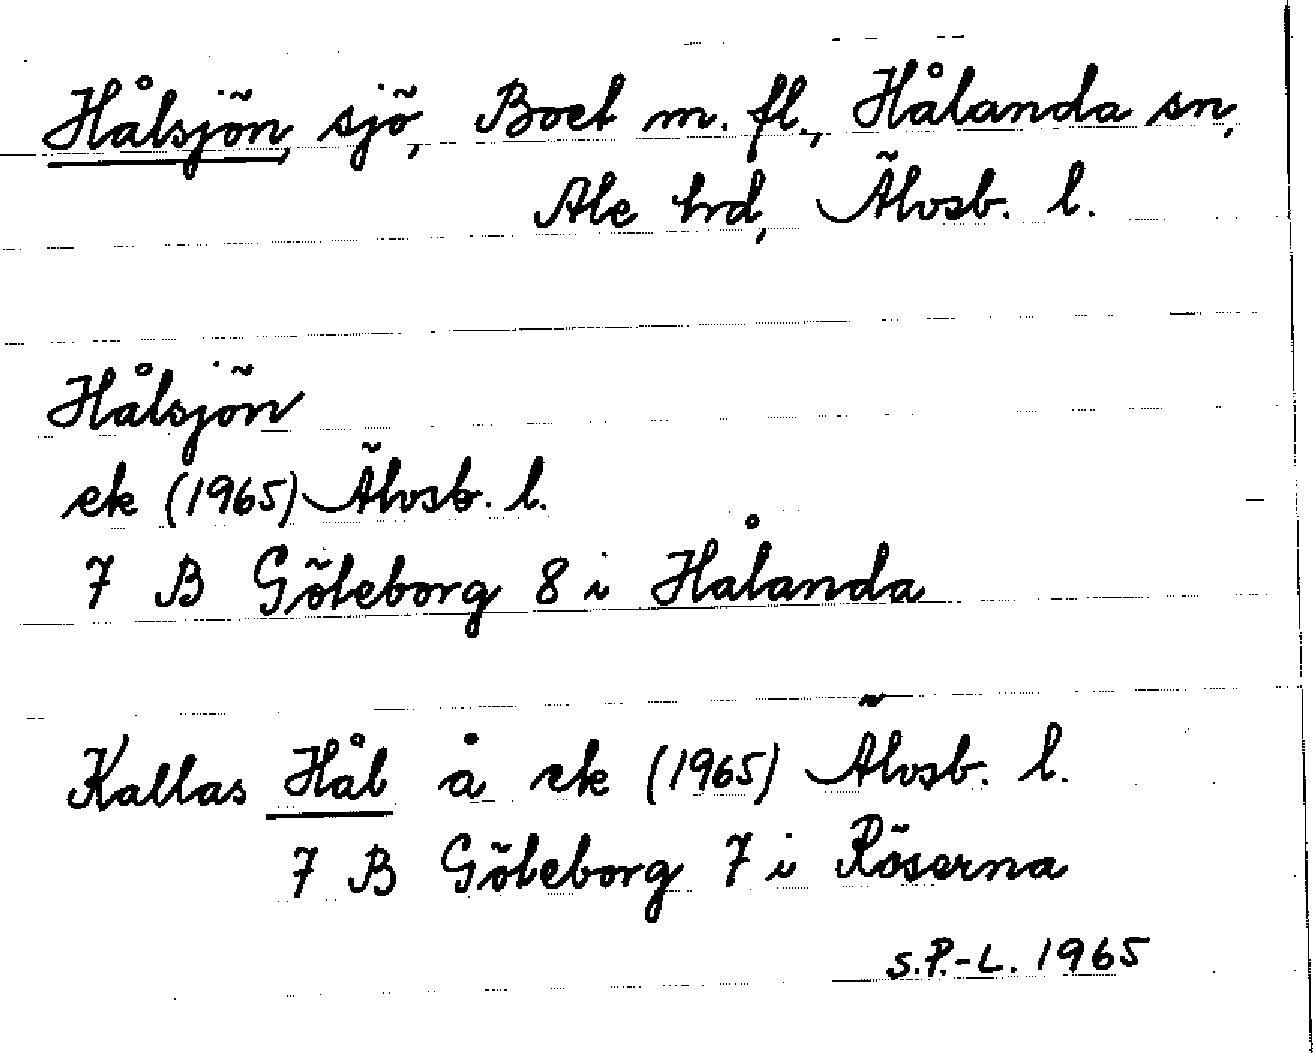 Hålsjön, sjö, Boet m. fl., Hålanda sn,
Ale hrd, Älvsb. l.
Hålsjön
ek (1965) Älvsb. l.
7 B Göteborg 8 i Hålanda
Kallas Hål å ek (1965) Älvsb. l.
7 B Göteborg 7 i Röserna
S.P.-L. 1965